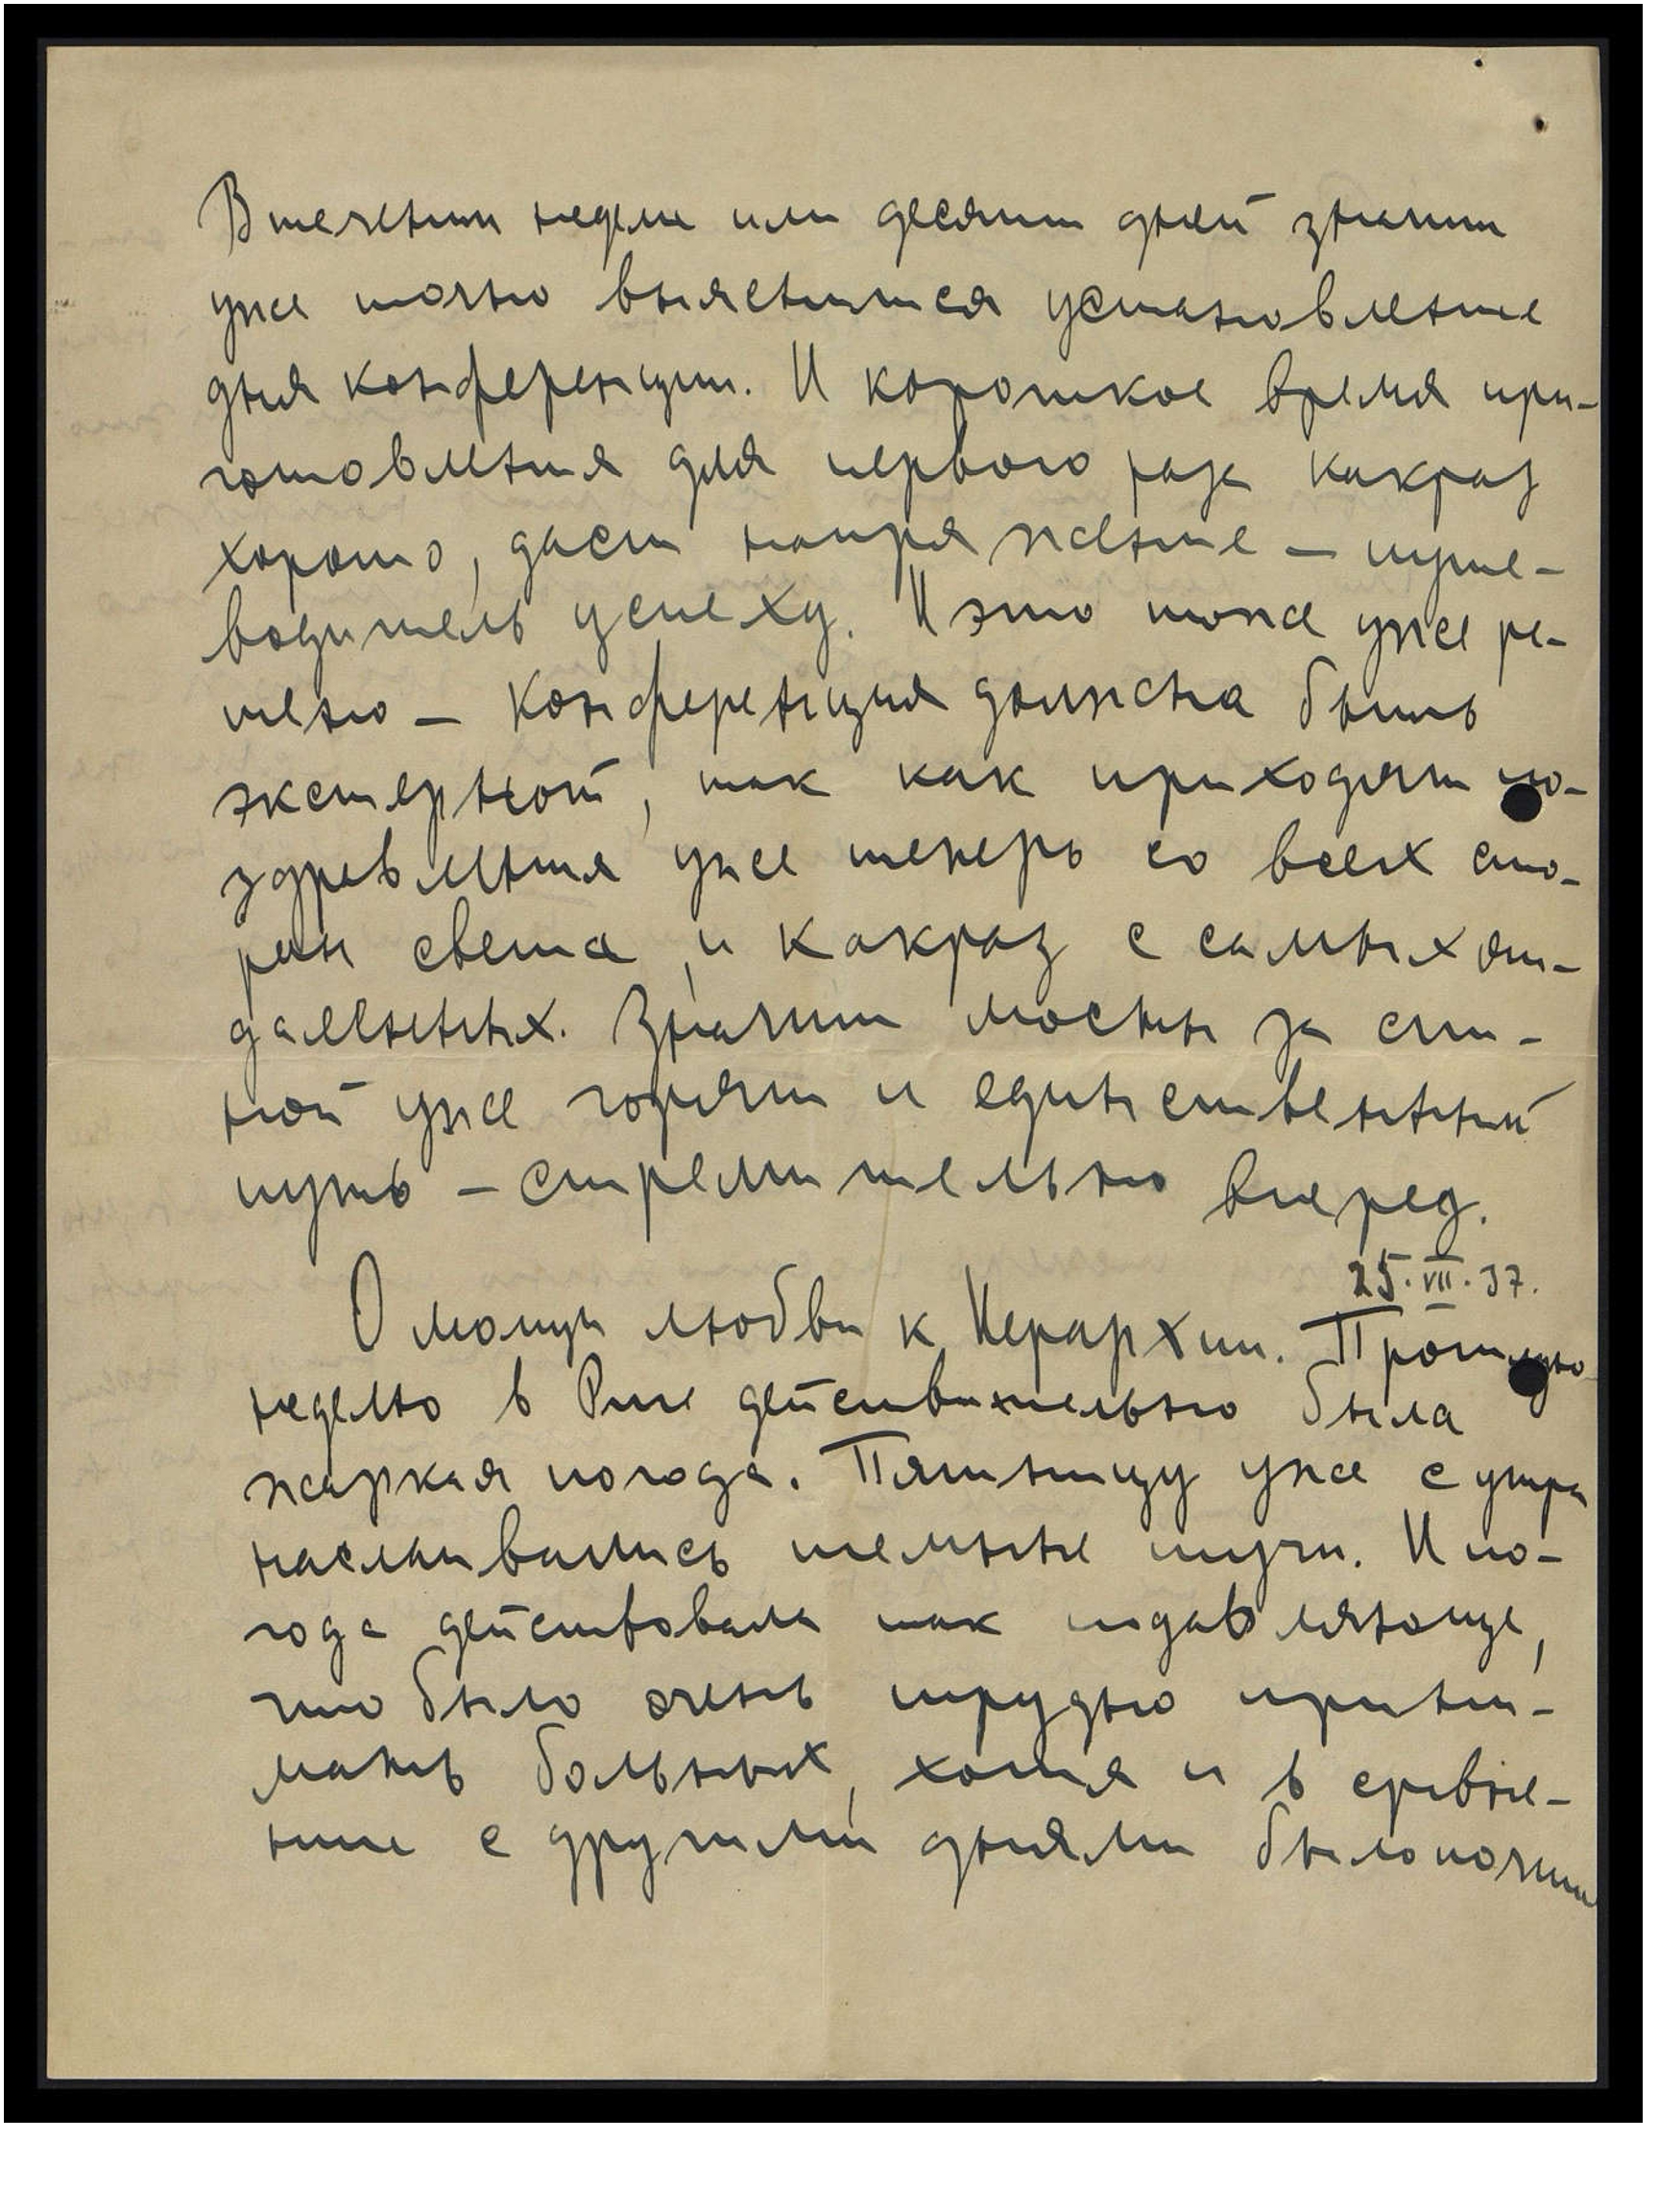 В течении недели или десяти дней значит
уже точно выяснится установление
дня конференции. И короткое время при-
готовления для первого раза какраз
хорошо, даст напряжение – путе-
водитель успеху. И это тоже уже ре-
шено – Конференция должна быть
экстерной, так как приходят по-
здравления уже теперь со всех сто-
рон света, и какраз с самых от-
даленных. Значит мосты за спи-
ной уже горят и единственный
путь – стремительно вперед.
25.VII.37.
О мощи любви к Иерархии. Прошлую
неделю в Риге действительно была
жаркая погода. Пятницу уже с утра
наслаивались темные тучи. И по-
года действовала так подавляюще,
что было очень трудно прини-
мать больных, хотя и в сравне-
ние с другими днями было почти